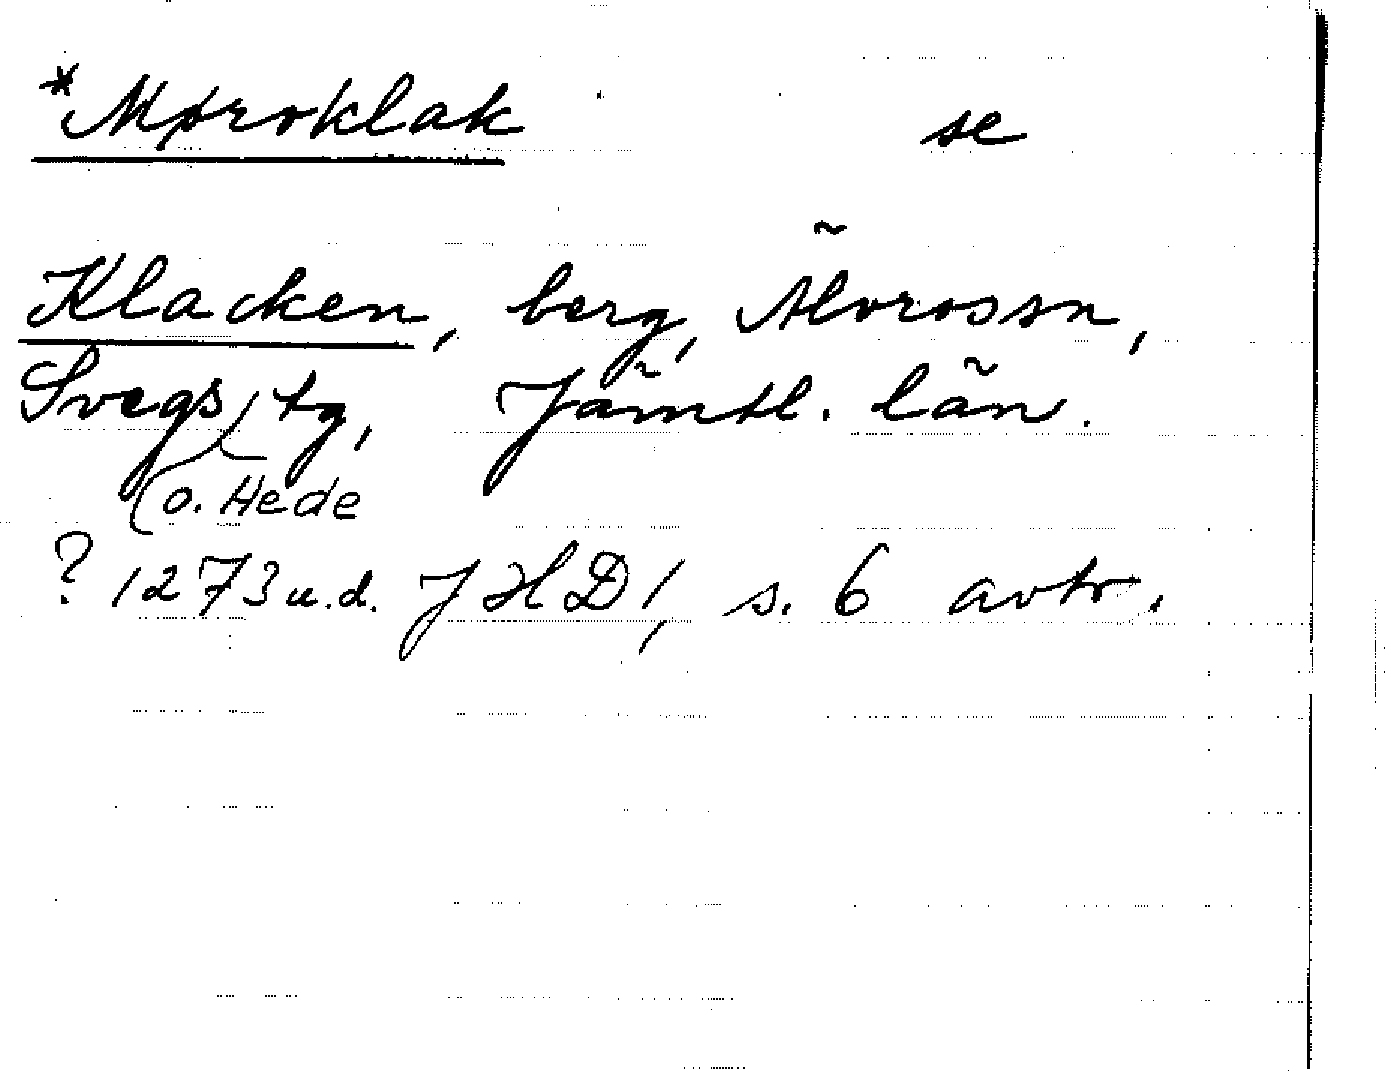 *Møroklak se
Klacken, berg, Älvrossn,
Svegs tg, Jämtl. län.
(o. Hede
? 1273 u.d. JHD 1, s. 6 avtr.